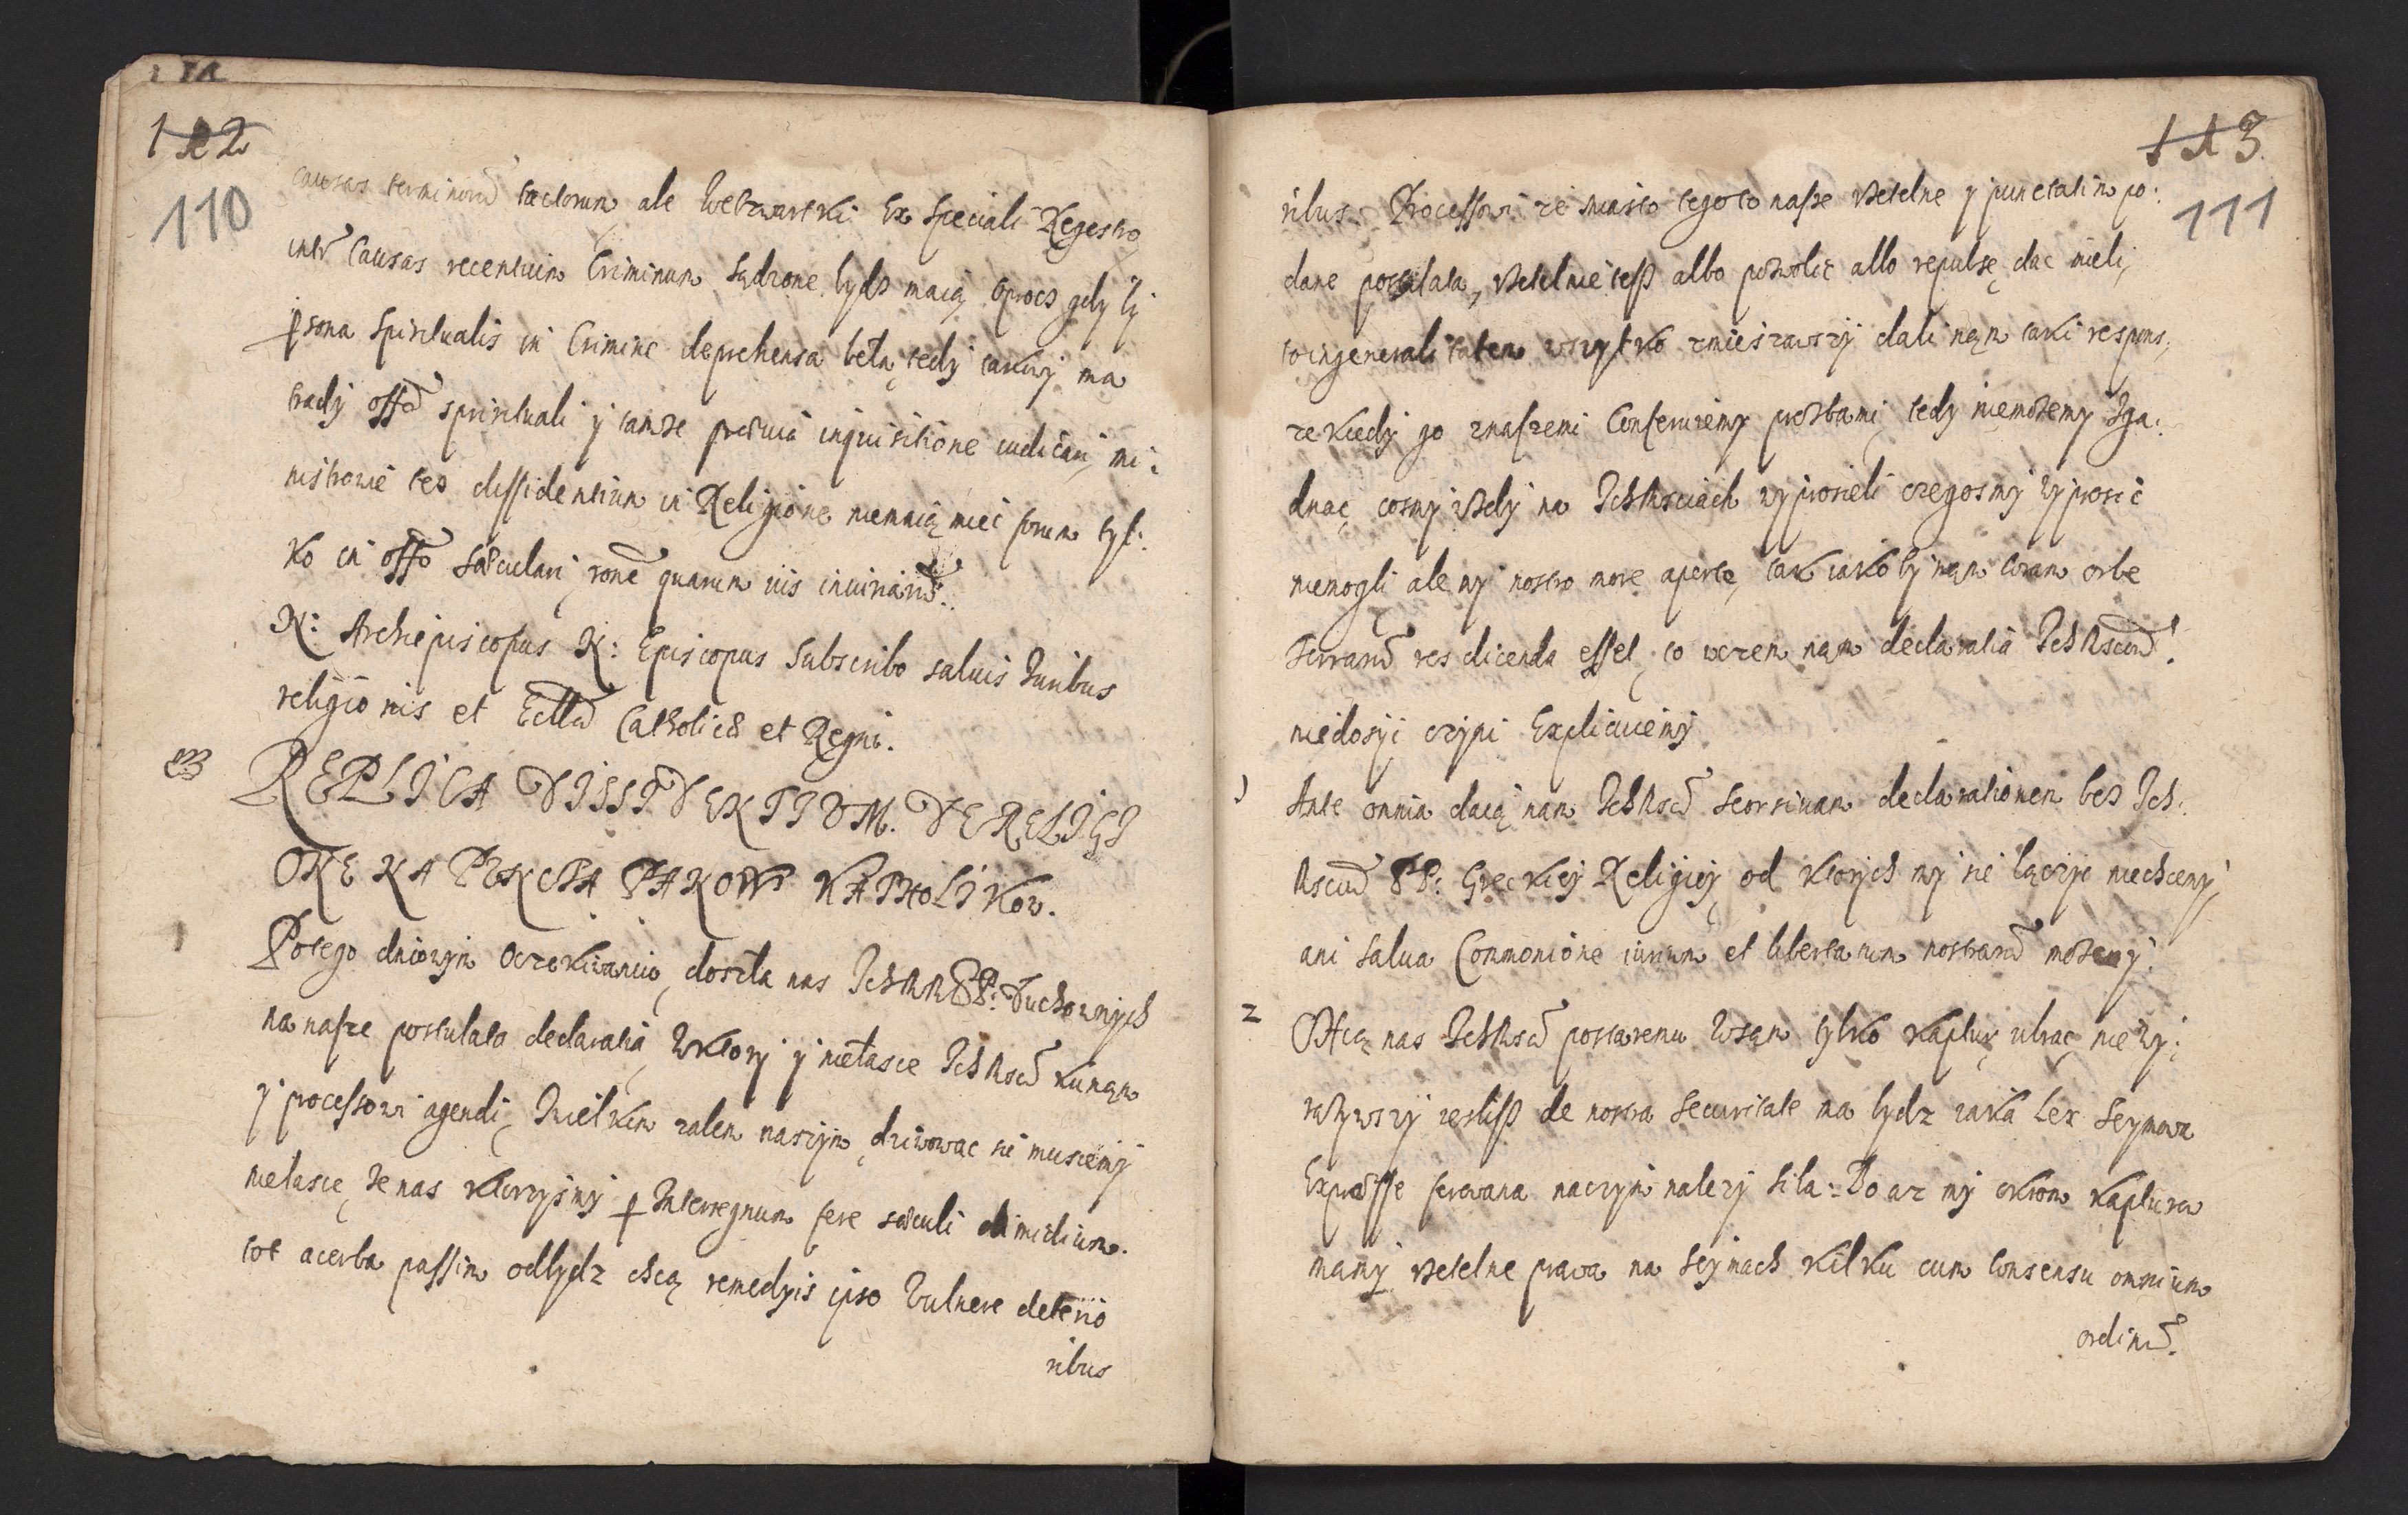 112
110
causas terminorum tactorum ale we Czwartki Ex speciali Regestro
inter Causas recentium Criminum sądzone bydz maią oprocz gdy by
persona Spiritualis in Crimine deprehensa beła, tedy takowy ma
tradi offo spirituali y tamże praevia inquisitione iudicari, mi:
nistrowie tez dissidentium in Religione niemaią miec forum tyl:
ko in offo saeculari, rone quarum vis iniuriarum.
N: Archiepiscopus N: Episcopus Subscribo salvis Iuribus
religionis et Eccllae Catholicae et Regni.
REPLICA DISSIDENTIUM. DE RELIGI
ONE NA PUNCTA PANOW KATHOLIKOW.
Potego dniowym oczekiwaniu, doszła nas Ich MM PP: Duchownych
na nasze postulata declaratia, w ktory y niełasce Ich Mscw kunąm
y processowi agendi, Wielkim zalem naszym, dziwowac sie musiemy
niełasce, że nas ktorzysmy per Interregnum fere saeculi dimidium.
tot acerba passim odbydz chcą remedyis ipso vulnere deterio
ribus
113
111
ribus. Processowi ze miasto tego co nasze rzetelne y punctatim po:
dane postulata, rzetelnie tesz albo pozwolic albo repulsę dac mieli,
to in generalitatem wszytko zmieszawszy dali nąm taki respons,
ze kiedy go znaszemi Conferuiemy prozbami, tedy niemożemy zga:
dnąc, cosmy wzdy na Ich Msciach wyprosieli czegosmy wyprosic
niemogli ale my nostro more aperte, tak iako by nąm coram orbe
terrarum res dicenda esset, co wczem nąm declaratia Ich Mscow
niedosyc czyni Expliciuiemy
1 Ante omnia daią nam Ich Mscw seorsivam declarationem bez Ich.
Mscow PP: Greckiey Religiey, od ktorych my sie łączyc niechcemy,
ani salva Communione iurium et libertatum nostrarum możemy.
2 Chcą nas Ich Mscw postaremu wsąm tylko Kaptur ubrac, nie wy:
raziwszy iesliz de nostra securitate ma bydz iaka Lex Seymowa
Expresse ferowana naczym nalezy siła: Bo az my okrom Kaptura
mamy rzetelne prawa na seymach kilku cum consensu omnium
ordinum.